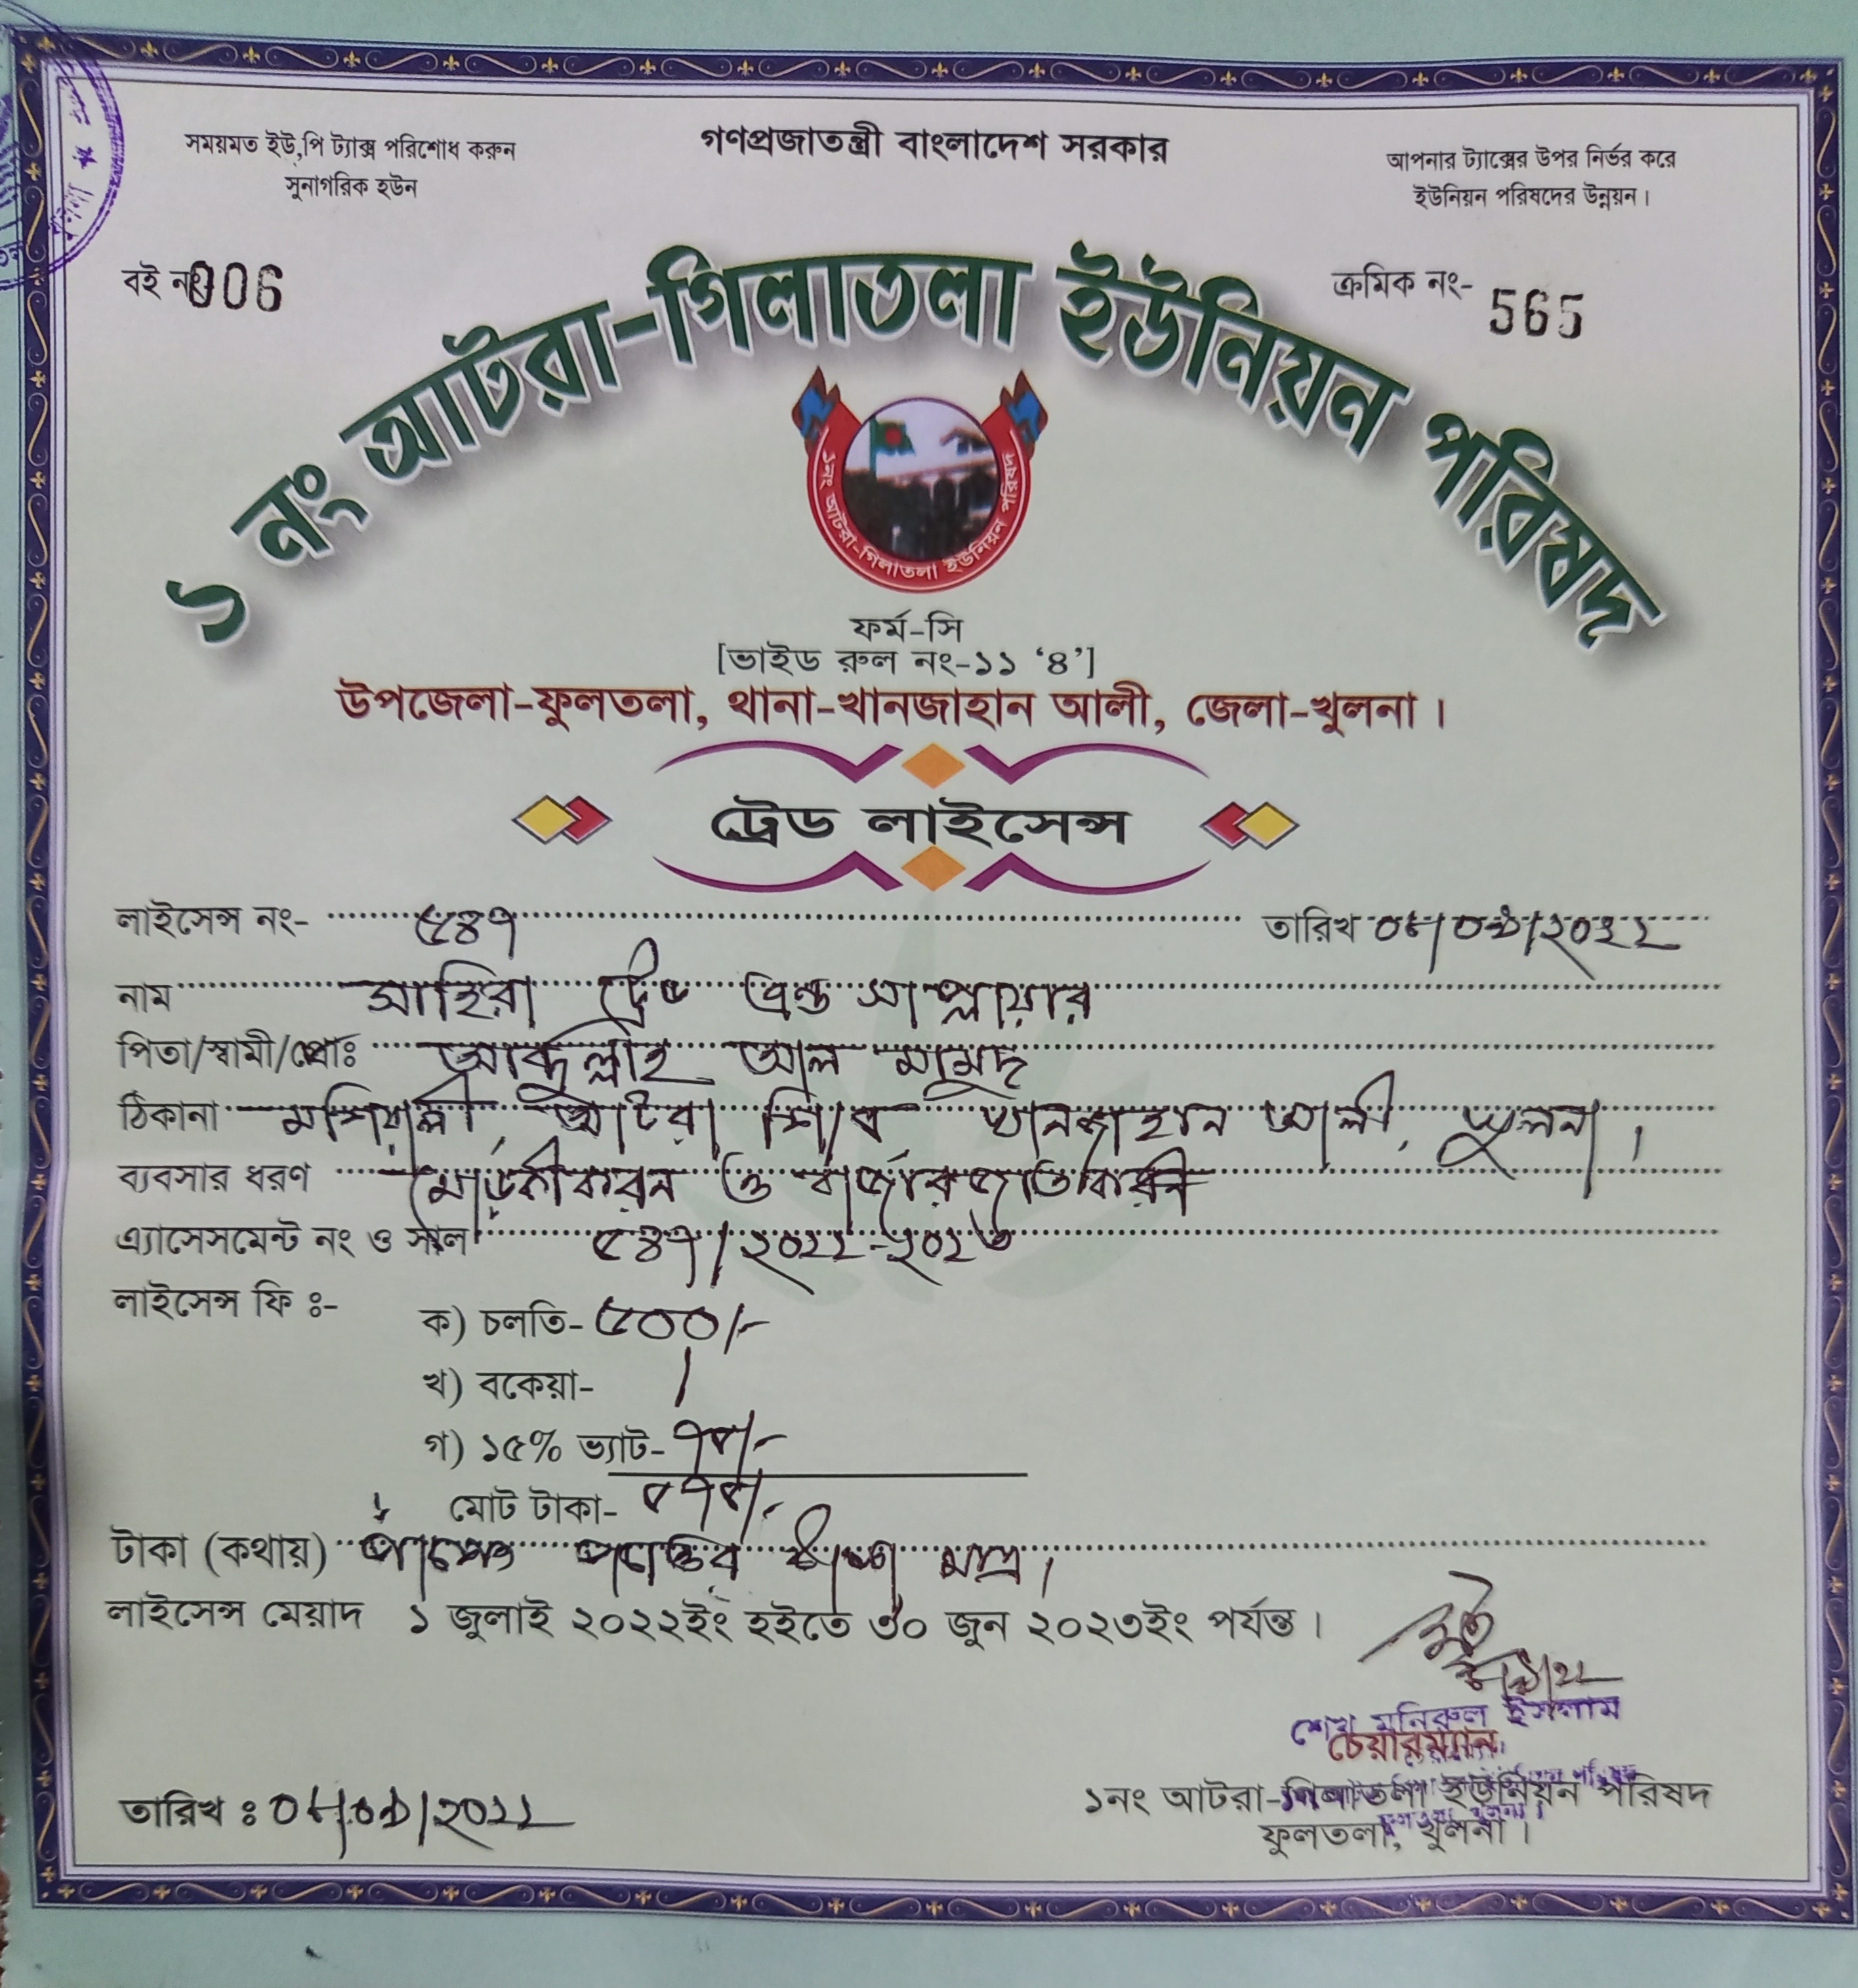 গণপ্রজাতন্ত্রী বাংলাদেশ সরকার
সময়মত ইউ,পি ট্যাক্স পরিশোধ করুন
সুনাগরিক হউন
আপনার ট্যাক্সের উপর নির্ভর করে
ইউনিয়ন পরিষদের উন্নয়ন।
বই নং 006
ক্রমিক নং- 565
১ নং আটরা-গিলাতলা ইউনিয়ন পরিষদ
১নং আটরা-গিলাতলা ইউনিয়ন পরিষদ
ফর্ম-সি
[ভাইড রুল নং-১১ ‘৪’]
উপজেলা-ফুলতলা, থানা-খানজাহান আলী, জেলা-খুলনা।
ট্রেড লাইসেন্স
লাইসেন্স নং- ৫৪৭ তারিখ ০৮/০৯/২০২২
নাম সাহিরা ট্রেড এন্ড সাপ্লায়ার
পিতা/স্বামী/প্রোঃ আব্দুল্লাহ আল মামুদ
ঠিকানা মশিয়ালী, আটরা খানজাহান আলী, খুলনা।
ব্যবসার ধরণ ও বাজারজাতকরন
এ্যাসেসমেন্ট নং ও সাল ৫৪৭/২০২২-২০২৩
লাইসেন্স ফি ঃ-
ক) চলতি- ৫০০/-
খ) বকেয়া- /
গ) ১৫% ভ্যাট- ৭৫/-
মোট টাকা- ৫৭৫/-
টাকা (কথায়) পাঁচশত পচাত্তর টাকা মাত্র।
লাইসেন্স মেয়াদ ১ জুলাই ২০২২ইং হইতে ৩০ জুন ২০২৩ইং পর্যন্ত।
শেখ মনিরুল ইসলাম
চেয়ারম্যান
১নং আটরা-গিলাতলা ইউনিয়ন পরিষদ
ফুলতলা, খুলনা।
তারিখ ঃ ০৮/০৯/২০২২